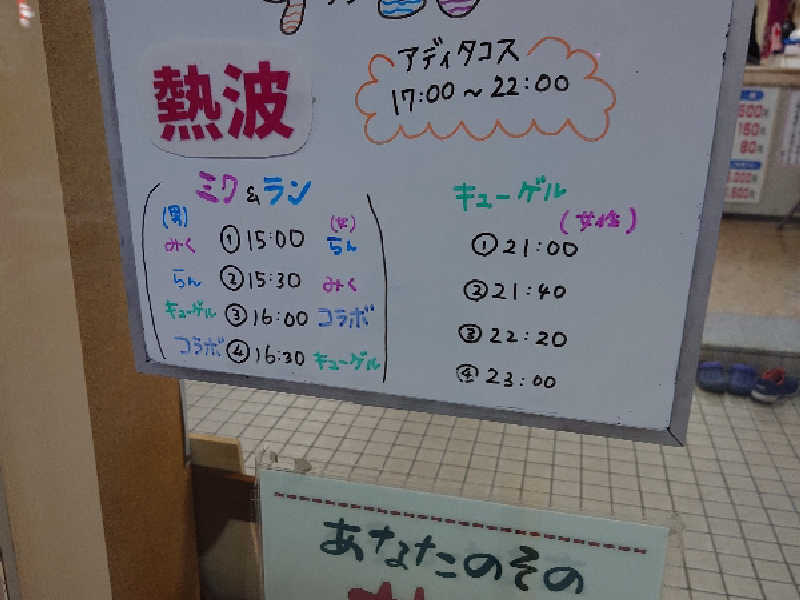 アディタコス
17:00～22:00
熱波
ミク&ラン
(男) (女)
みく ①15:00 らん
らん ②15:30 みく
キューゲル ③16:00 コラボ
コラボ ④16:30 キューゲル
キューゲル
(女性)
①21:00
②21:40
③22:20
④23:00
あなたのその